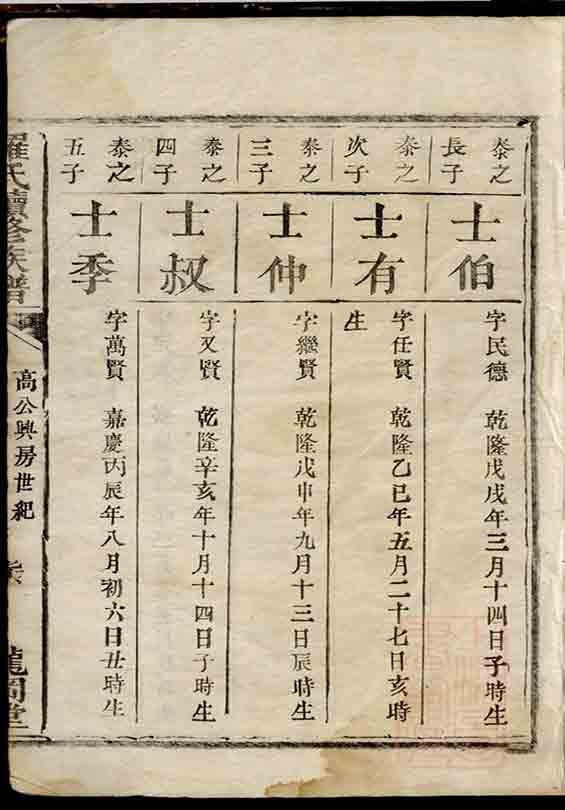 泰之
長子
士伯
字民德 乾隆戊戌年三月十四日子時生
泰之
次子
士有
字任賢 乾隆乙巳年五月二十七日亥時
生
泰之
三子
士仲
字繼賢 乾隆戊申年九月十三日辰時生
泰之
四子
士叔
字又賢 乾隆辛亥年十月十四日子時生
泰之
五子
士季
字萬賢 嘉慶丙辰年八月初六日丑時生
羅氏續修族譜
高公興房世紀